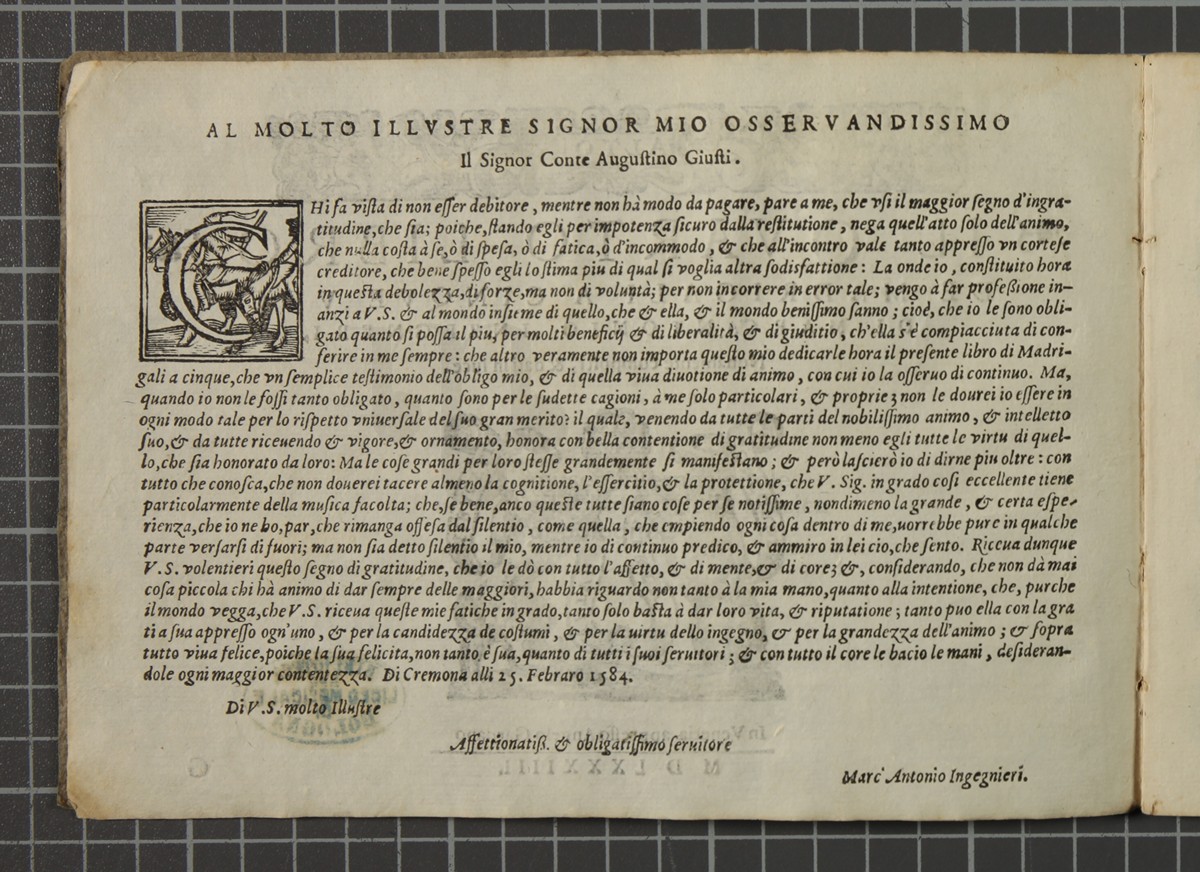 AL MOLTO ILLVSTRE SIGNOR MIO OSSERVANDISSIMO
Il Signor Conte Auguſtino Giuſti.
CHi fa viſta di non eſſer debitore, mentre non hà modo da pagare, pare a me, che vſi il maggior ſegno d'ingra-
titudine, che ſia; poiche, ſtando egli per impotenza ſicuro dalla reſtitutione, nega quell'atto ſolo dell'animo,
che nulla coſta à ſe, ò di ſpeſa, ò di fatica, ò d'incommodo, & che all'incontro vale tanto appreſſo vn corteſe
creditore, che bene ſpeſſo egli lo ſtima piu di qual ſi voglia altra ſodisfattione: La onde io, conſtituito hora
in queſta debolezza, di forze, ma non di voluntà; per non incorrere in error tale; vengo à far profeßione in-
anzi a V.S. & al mondo inſieme di quello, che & ella, & il mondo beniſſimo ſanno; cioè, che io le ſono obli-
gato quanto ſi poſſa il piu, per molti beneficij & di liberalità, & di giuditio, ch'ella s'è compiacciuta di con-
ferire in me ſempre: che altro veramente non importa queſto mio dedicarle hora il preſente libro di Madri-
gali a cinque, che vn ſemplice teſtimonio dell'obligo mio, & di quella viua diuotione di animo, con cui io la oſſeruo di continuo. Ma,
quando io non le foſſi tanto obligato, quanto ſono per le ſudette cagioni, à me ſolo particolari, & proprie; non le dourei io eſſere in
ogni modo tale per lo riſpetto vniuerſale del ſuo gran merito? il quale, venendo da tutte le parti del nobiliſſimo animo, & intelletto
ſuo, & da tutte riceuendo & vigore, & ornamento, honora con bella contentione di gratitudine non meno egli tutte le virtu di quel-
lo, che ſia honorato da loro: Ma le coſe grandi per loro ſteſſe grandemente ſi manifeſtano; & però laſcierò io di dirne piu oltre: con
tutto che conoſca, che non douerei tacere almeno la cognitione, l'eſſercitio, & la protettione, che V. Sig. in grado coſi eccellente tiene
particolarmente della muſica facolta; che, ſe bene, anco queſte tutte ſiano coſe per ſe notiſſime, nondimeno la grande, & certa eſpe-
rienza, che io ne ho, par, che rimanga offeſa dal ſilentio, come quella, che empiendo ogni coſa dentro di me, uorrebbe pure in qualche
parte verſarſi di fuori; ma non ſia detto ſilentio il mio, mentre io di continuo predico, & ammiro in lei cio, che ſento. Riceua dunque
V.S. volentieri queſto ſegno di gratitudine, che io le dò con tutto l'affetto, & di mente, & di core; &, conſiderando, che non dà mai
coſa piccola chi hà animo di dar ſempre delle maggiori, habbia riguardo non tanto à la mia mano, quanto alla intentione, che, purche
il mondo vegga, che V.S. riceua queſte mie fatiche in grado, tanto ſolo baſta à dar loro vita, & riputatione; tanto puo ella con la gra
tia ſua appreſſo ogn'uno, & per la candidezza de coſtumi, & per la uirtu dello ingegno, & per la grandezza dell'animo; & ſopra
tutto viua felice, poiche la ſua felicita, non tanto, è ſua, quanto di tutti i ſuoi ſeruitori; & con tutto il core le bacio le mani, deſideran-
dole ogni maggior contentezza. Di Cremona alli 25. Febraro 1584.
Di V.S. molto Illuſtre
Affettionatiß. & obligatiſſimo ſeruitore
Marc' Antonio Ingegnieri.